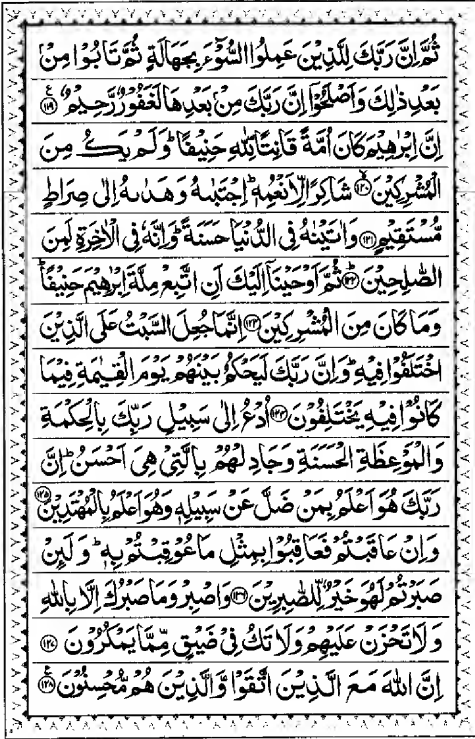 ثُمَّ اِنَّ رَبَّكَ لِلَّذِيْنَ عَمِلُوا السُّوْٓءَ بِجَهَالَةٍ ثُمَّ تَابُوْا مِنْۢ
بَعْدِ ذٰلِكَ وَاَصْلَحُوْۤا اِنَّ رَبَّكَ مِنْۢ بَعْدِهَا لَغَفُوْرٌ رَّحِيْمٌ ﴿۱۱۹﴾ ع
اِنَّ اِبْرٰهِيْمَ كَانَ اُمَّةً قَانِتًا لِّلّٰهِ حَنِيْفًا ؕ وَلَمْ يَكُ مِنَ
الْمُشْرِكِيْنَ ﴿۱۲۰﴾ شَاكِرًا لِّاَنْعُمِهٖ ؕ اِجْتَبٰىهُ وَهَدٰىهُ اِلٰى صِرَاطٍ
مُّسْتَقِيْمٍ ﴿۱۲۱﴾ وَاٰتَيْنٰهُ فِى الدُّنْيَا حَسَنَةً ؕ وَاِنَّهٗ فِى الْاٰخِرَةِ لَمِنَ
الصّٰلِحِيْنَ ﴿۱۲۲﴾ ثُمَّ اَوْحَيْنَاۤ اِلَيْكَ اَنِ اتَّبِعْ مِلَّةَ اِبْرٰهِيْمَ حَنِيْفًا ؕ
وَمَا كَانَ مِنَ الْمُشْرِكِيْنَ ﴿۱۲۳﴾ اِنَّمَا جُعِلَ السَّبْتُ عَلَى الَّذِيْنَ
اخْتَلَفُوْا فِيْهِ ؕ وَاِنَّ رَبَّكَ لَيَحْكُمُ بَيْنَهُمْ يَوْمَ الْقِيٰمَةِ فِيْمَا
كَانُوْا فِيْهِ يَخْتَلِفُوْنَ ﴿۱۲۴﴾ اُدْعُ اِلٰى سَبِيْلِ رَبِّكَ بِالْحِكْمَةِ
وَالْمَوْعِظَةِ الْحَسَنَةِ وَجَادِلْهُمْ بِالَّتِىْ هِىَ اَحْسَنُ ؕ اِنَّ
رَبَّكَ هُوَ اَعْلَمُ بِمَنْ ضَلَّ عَنْ سَبِيْلِهٖ وَهُوَ اَعْلَمُ بِالْمُهْتَدِيْنَ ﴿۱۲۵﴾
وَاِنْ عَاقَبْتُمْ فَعَاقِبُوْا بِمِثْلِ مَا عُوْقِبْتُمْ بِهٖ ؕ وَلَئِنْ
صَبَرْتُمْ لَهُوَ خَيْرٌ لِّلصّٰبِرِيْنَ ﴿۱۲۶﴾ وَاصْبِرْ وَمَا صَبْرُكَ اِلَّا بِاللّٰهِ
وَلَا تَحْزَنْ عَلَيْهِمْ وَلَا تَكُ فِىْ ضَيْقٍ مِّمَّا يَمْكُرُوْنَ ﴿۱۲۷﴾
اِنَّ اللّٰهَ مَعَ الَّذِيْنَ اتَّقَوْا وَّالَّذِيْنَ هُمْ مُّحْسِنُوْنَ ﴿۱۲۸﴾ ع